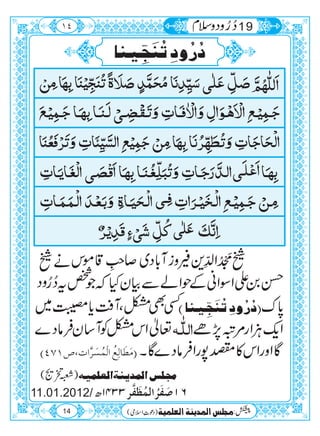 ١٤
19 دُرُود و سلام
دُرُودِ تُنَجِّیْنَا
اَللّٰهُمَّ صَلِّ عَلٰى سَيِّدِنَا مُحَمَّدٍ صَلَاةً تُنَجِّيْنَا بِهَا مِنْ
جَمِيْعِ الْاَهْوَالِ وَالْاٰفَاتِ وَتَقْضِىْ لَنَا بِهَا جَمِيْعَ
الْحَاجَاتِ وَتُطَهِّرُنَا بِهَا مِنْ جَمِيْعِ السَّيِّئَاتِ وَتَرْفَعُنَا
بِهَا اَعْلَى الدَّرَجَاتِ وَتُبَلِّغُنَا بِهَا اَقْصَى الْغَايَاتِ
مِنْ جَمِيْعِ الْخَيْرَاتِ فِى الْحَيَاةِ وَبَعْدَ الْمَمَاتِ
اِنَّكَ عَلٰى كُلِّ شَىْءٍ قَدِيْرٌ
شیخ مجدُ الدّین فیروز آبادی صاحبِ قاموس نے شیخ
حسن بن علی اسوانی کے حوالے سے بیان کیا کہ جو شخص یہ دُرُودِ
پاک (دُرُودِ تُنَجِّیْنَا) کسی بھی مشکل، آفت یا مصیبت میں
ایک ہزار مرتبہ پڑھے اللہ تعالٰی اس مشکل کو آسان فرمادے
گا اور اس کا مقصد پورا فرمادے گا۔ (مَطَالِعُ الْمُسَرَّات، ص ٤٧١)
مجلس المدینۃ العلمیہ (شعبہ تخریج)
١٦ صَفَرُ الْمُظَفَّر ١٤٣٣ھ /11.01.2012
14
پیشکش: مجلس المدینۃ العلمیۃ (دعوتِ اسلامی)